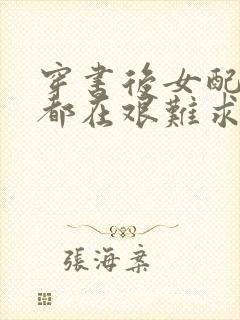 穿書後女配
都在艱難求
張海棠